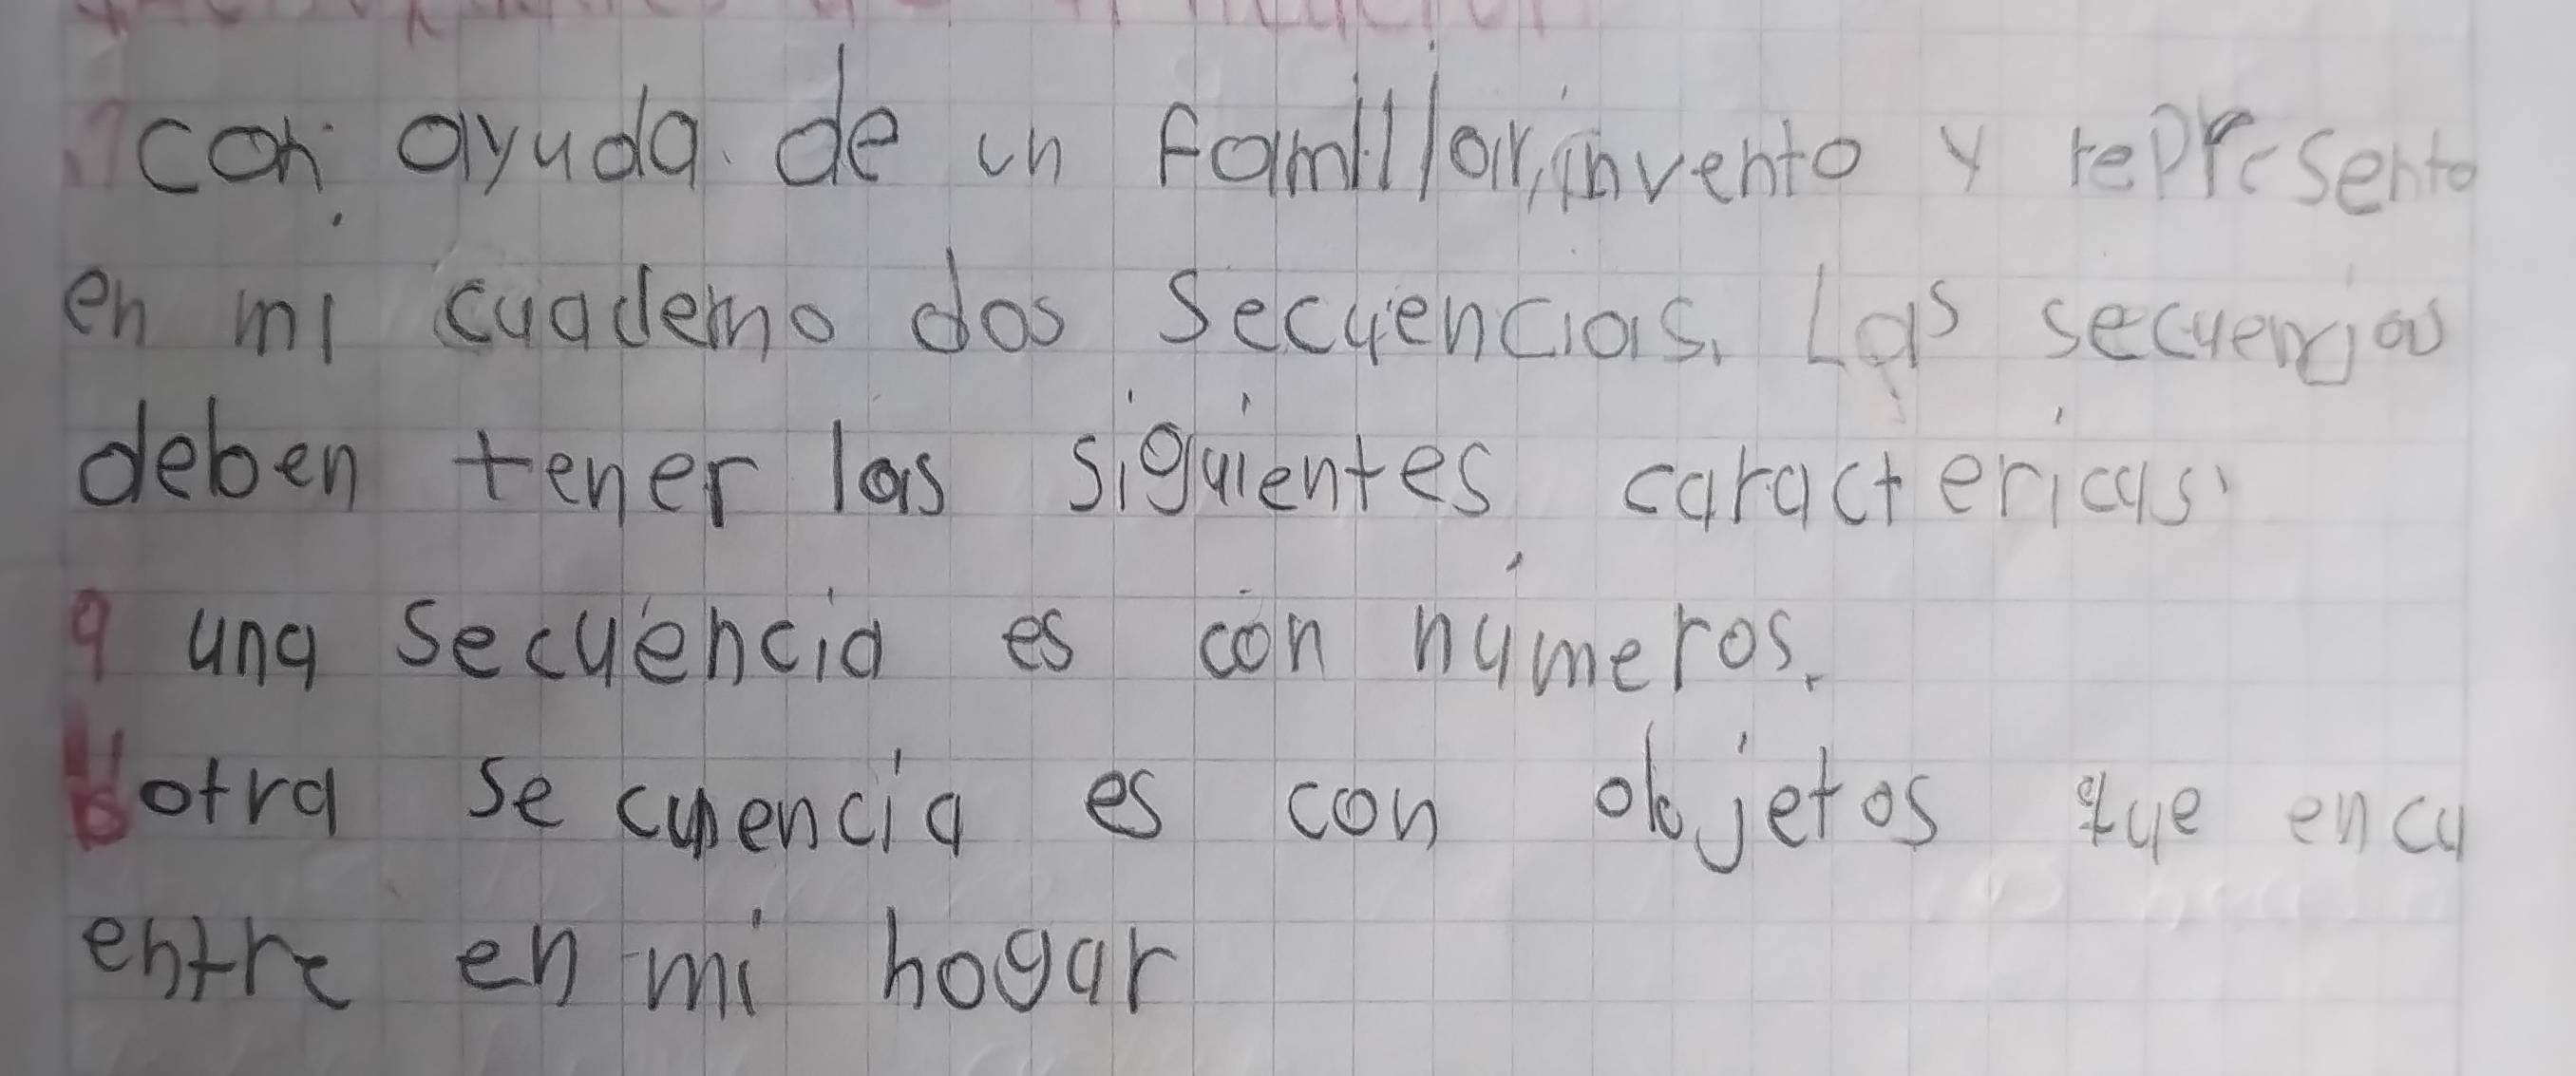 con ayuda de un familiar, invento y represento
en mi cuaderno dos secuencias. Las secuencias
deben tener las siguientes caractericas
a una secuencia es con números.
b otra se cuencia es con objetos que encu
entre en mi hogar